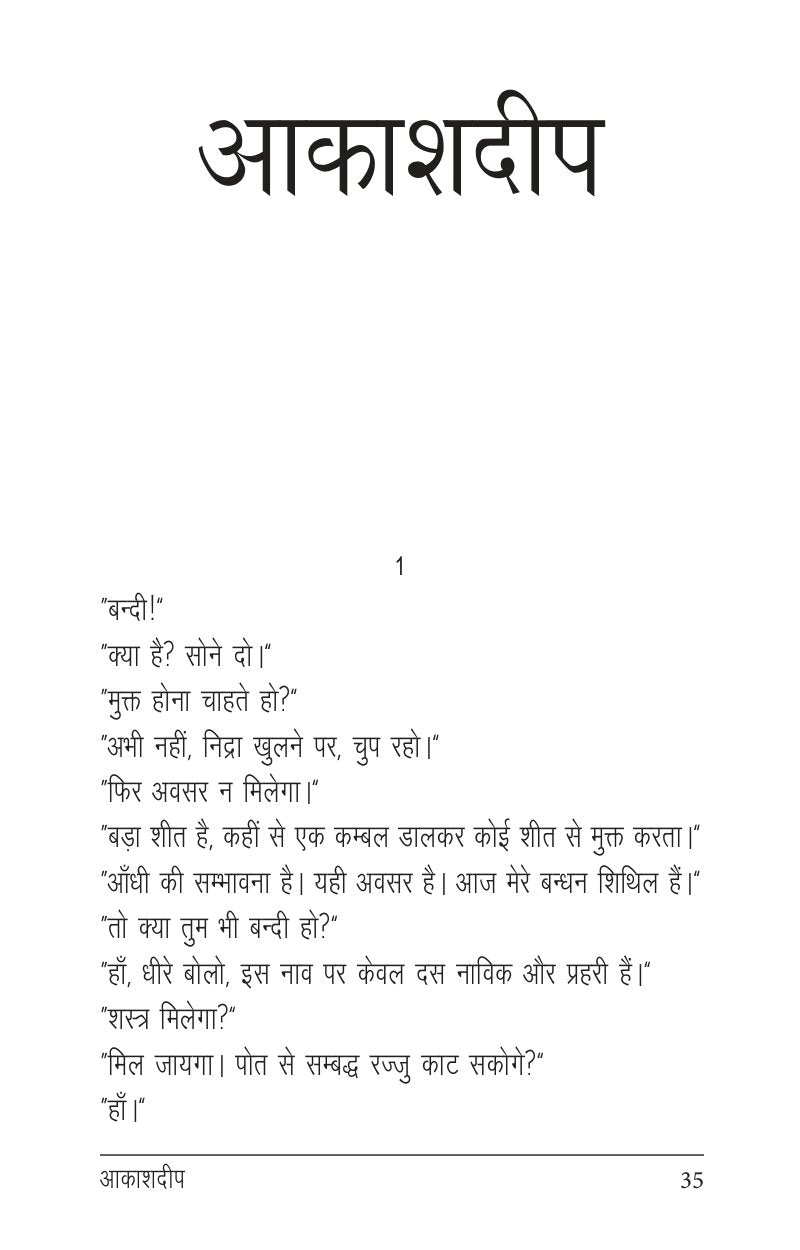 आकाशदीप
1
"बन्दी!“
"क्या है? सोने दो।“
"मुक्त होना चाहते हो?“
"अभी नहीं, निद्रा खुलने पर, चुप रहो।“
"फिर अवसर न मिलेगा।“
"बड़ा शीत है, कहीं से एक कम्बल डालकर कोई शीत से मुक्त करता।“
"आँधी की सम्भावना है। यही अवसर है। आज मेरे बन्धन शिथिल हैं।“
"तो क्या तुम भी बन्दी हो?“
"हाँ, धीरे बोलो, इस नाव पर केवल दस नाविक और प्रहरी हैं।“
"शस्त्र मिलेगा?“
"मिल जायगा। पोत से सम्बद्ध रज्जु काट सकोगे?“
"हाँ।“
आकाशदीप 35